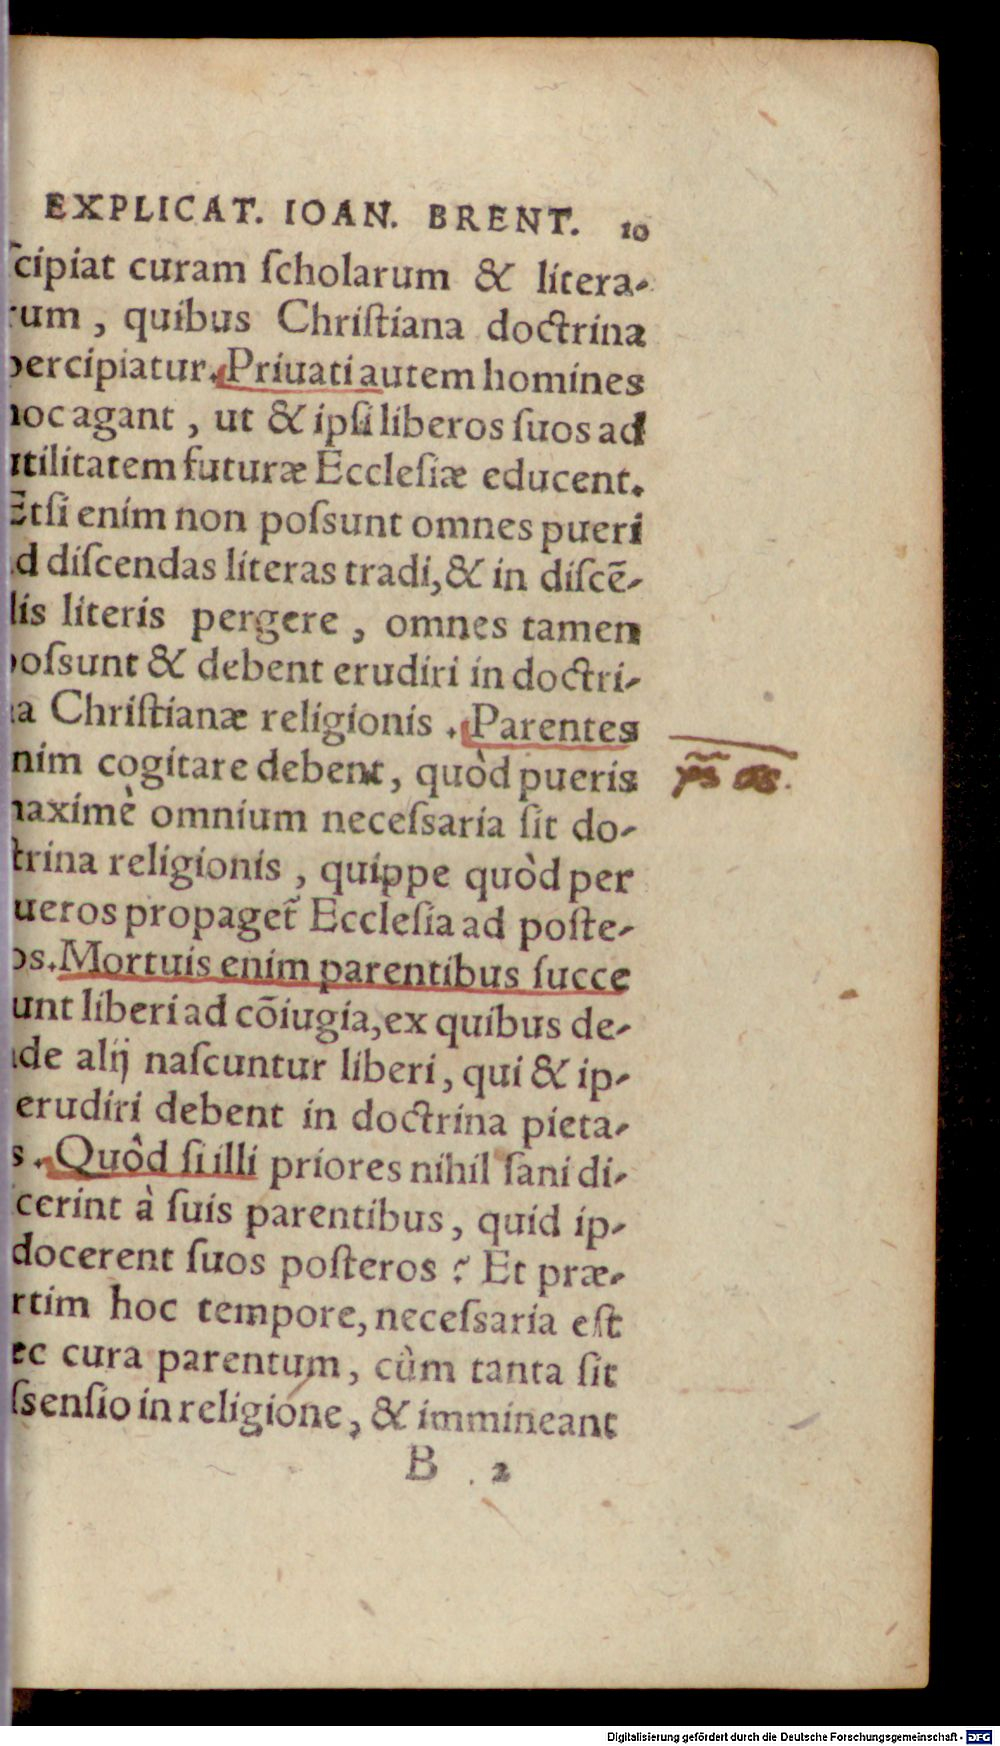 EXPLICAT. IOAN. BRENT. 10
ſcipiat curam ſcholarum & litera-
rum, quibus Chriſtiana doctrina
percipiatur. Priuati autem homines
hoc agant, ut & ipſi liberos ſuos ad
utilitatem futuræ Eccleſiæ educent.
Etſi enim non poſsunt omnes pueri
ad diſcendas literas tradi, & in diſcẽ-
dis literis pergere, omnes tamen
poſsunt & debent erudiri in doctri-
na Chriſtianæ religionis. Parentes
enim cogitare debent, quòd pueris
maximè omnium neceſsaria ſit do-
ctrina religionis, quippe quòd per
pueros propaget᷑ Eccleſia ad poſte-
os. Mortuis enim parentibus ſucce
unt liberi ad cõiugia, ex quibus de-
nde alij naſcuntur liberi, qui & ip-
erudiri debent in doctrina pieta-
s. Quòd ſi illi priores nihil ſani di-
cerint à ſuis parentibus, quid ip-
docerent ſuos poſteros? Et præ-
rtim hoc tempore, neceſsaria eſt
ec cura parentum, cùm tanta ſit
ſsenſio in religione, & immineant
B 2
Digitalisierung gefördert durch die Deutsche Forschungsgemeinschaft - DFG